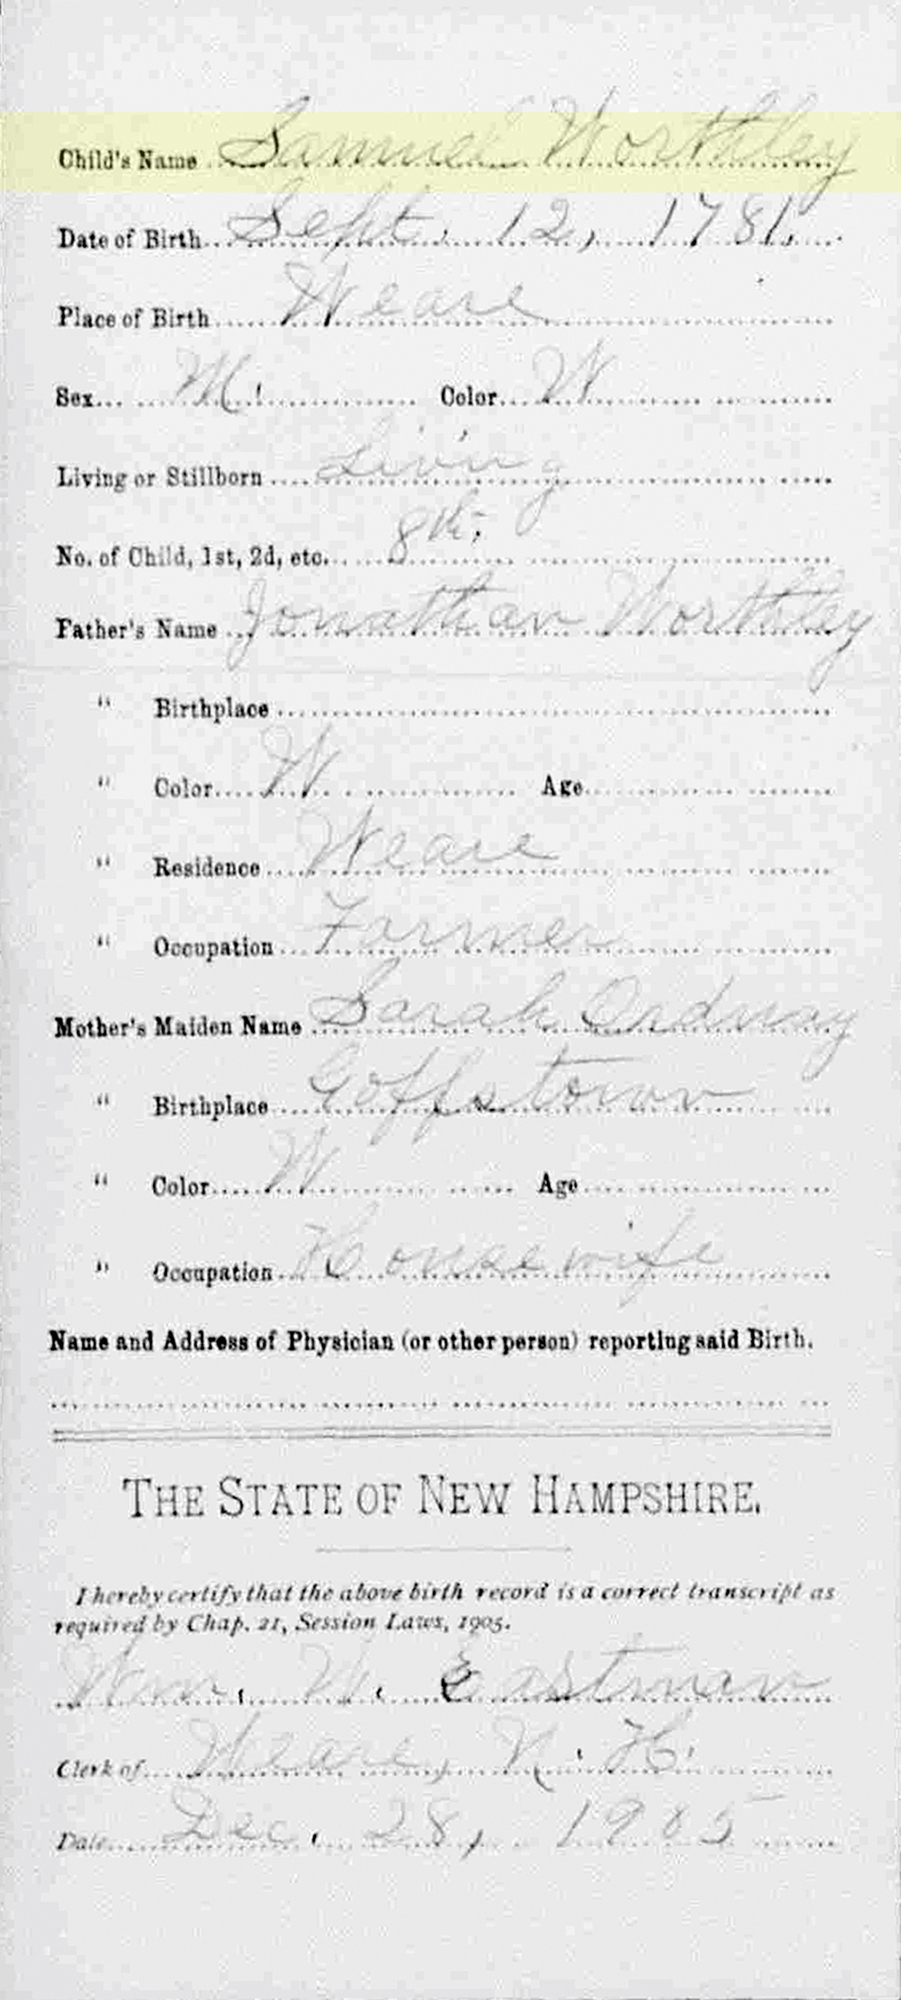 Child's Name Samuel Worthley
Date of Birth Sept. 12, 1781.
Place of Birth Weare
Sex M. Color W
Living or Stillborn Living
No. of Child, 1st, 2d, etc. 8th.
Father's Name Jonathan Worthley
" Birthplace
" Color W Age
" Residence Weare
" Occupation Farmer
Mother's Maiden Name Sarah Ordway
" Birthplace Goffstown
" Color W Age
" Occupation Housewife
Name and Address of Physician (or other person) reporting said Birth.
THE STATE OF NEW HAMPSHIRE.
I hereby certify that the above birth record is a correct transcript as
required by Chap. 21, Session Laws, 1905.
Wm. W. Eastman
Clerk of Weare, N. H.
Date Dec. 28, 1905